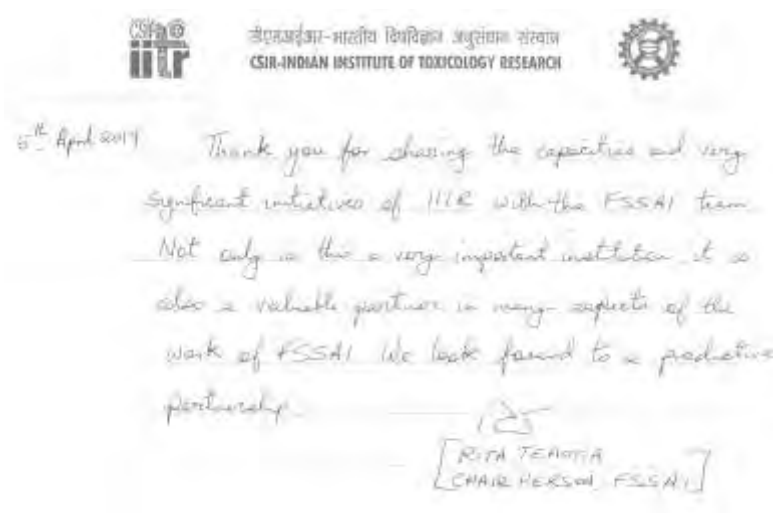 CSIR
iitr
सीएसआईआर-भारतीय विषविज्ञान अनुसंधान संस्थान
CSIR-INDIAN INSTITUTE OF TOXICOLOGY RESEARCH
5th April 2019
Thank you for sharing the capacities and very
significant initiatives of IITR with the FSSAI team.
Not only is this a very important institution it is
also a valuable partner in many aspects of the
work of FSSAI. We look forward to a productive
partnership.
[RITA TEAOTIA
CHAIRPERSON, FSSAI]